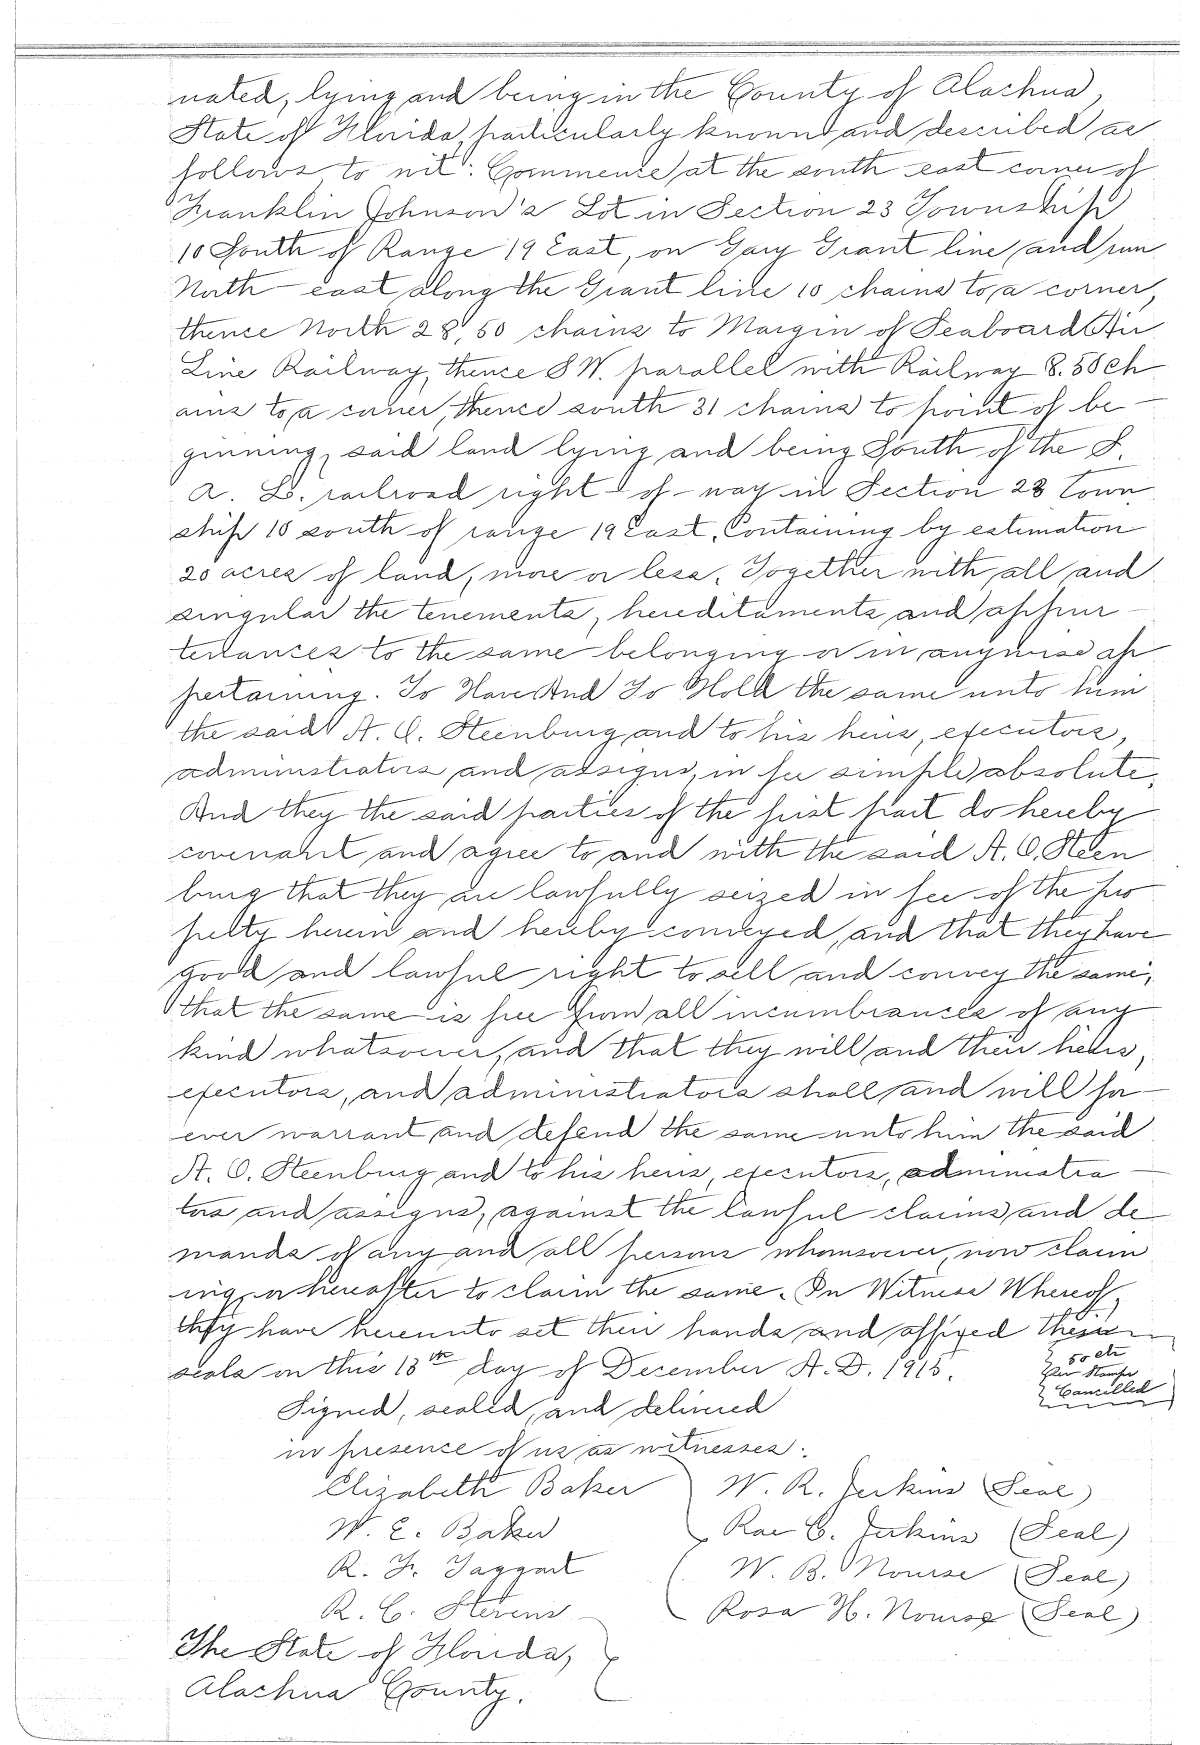 nated, lying and being in the County of Alachua,
State of Florida, particularly known and described as
follows, to wit: Commence at the south east corner of
Franklin Johnson's Lot in Section 23 Township
10 South of Range 19 East, on Gary Grant line and run
North east along the Grant line 10 chains to a corner,
thence North 28,50 chains to Margin of Seaboard Air
Line Railway, thence S W. parallel with Railway 8.50 ch
ains to a corner, thence south 31 chains to point of be-
ginning, said land lying and being South of the S.
A. L. railroad right-of-way in Section 23 Town
ship 10 south of range 19 East, Containing by estimation
20 acres of land, more or less. Together with all and
singular the tenements, hereditaments and appur-
tenances to the same belonging or in anywise ap
pertaining. To Have And To Hold the same unto him
the said A. O. Steenburg and to his heirs, executors,
administrators and assigns, in fee simple absolute.
And they the said parties of the first part do hereby
covenant and agree to and with the said A. O. Steen
burg that they are lawfully seized in fee of the pro
perty herein and hereby conveyed, and that they have
good and lawful right to sell and convey the same,
that the same is free from all incumbrances of any
kind whatsoever, and that they will and their heirs,
executors, and administrators shall and will for-
ever warrant and defend the same unto him the said
A. O. Steenburg and to his heirs, executors, administra-
tors and assigns, against the lawful claims and de
mands of any and all persons whomsoever, now claim
ing or hereafter to claim the same. In Witness Whereof,
they have hereunto set their hands and affixed their
seals on this 13th day of December A. D. 1915.
50 cts
Rev Stamps
Cancelled
Signed, sealed, and delivered
in presence of us as witnesses:
Elizabeth Baker W. R. Jerkins (Seal)
W. E. Baker Rae C. Jerkins (Seal)
R. F. Taggart W. B. Nourse (Seal)
R. C. Stevens Rosa H. Nourse (Seal)
The State of Florida,
Alachua County.